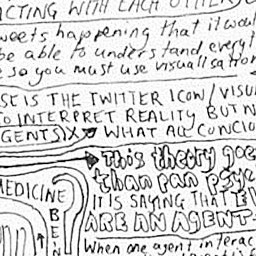 ACTING WITH EACH OTHER
weets happening that it woul
be able to understand everyt
so you must use visualisation
SE IS THE TWITTER ICON / VISU
TO INTERPRET REALITY BUT N
GENTS) X WHAT ALL CONCIO
This theory goe
than pan psyc
MEDICINE
IT IS SAYING THAT EV
ARE AN AGENT
BEN
When one agent interac